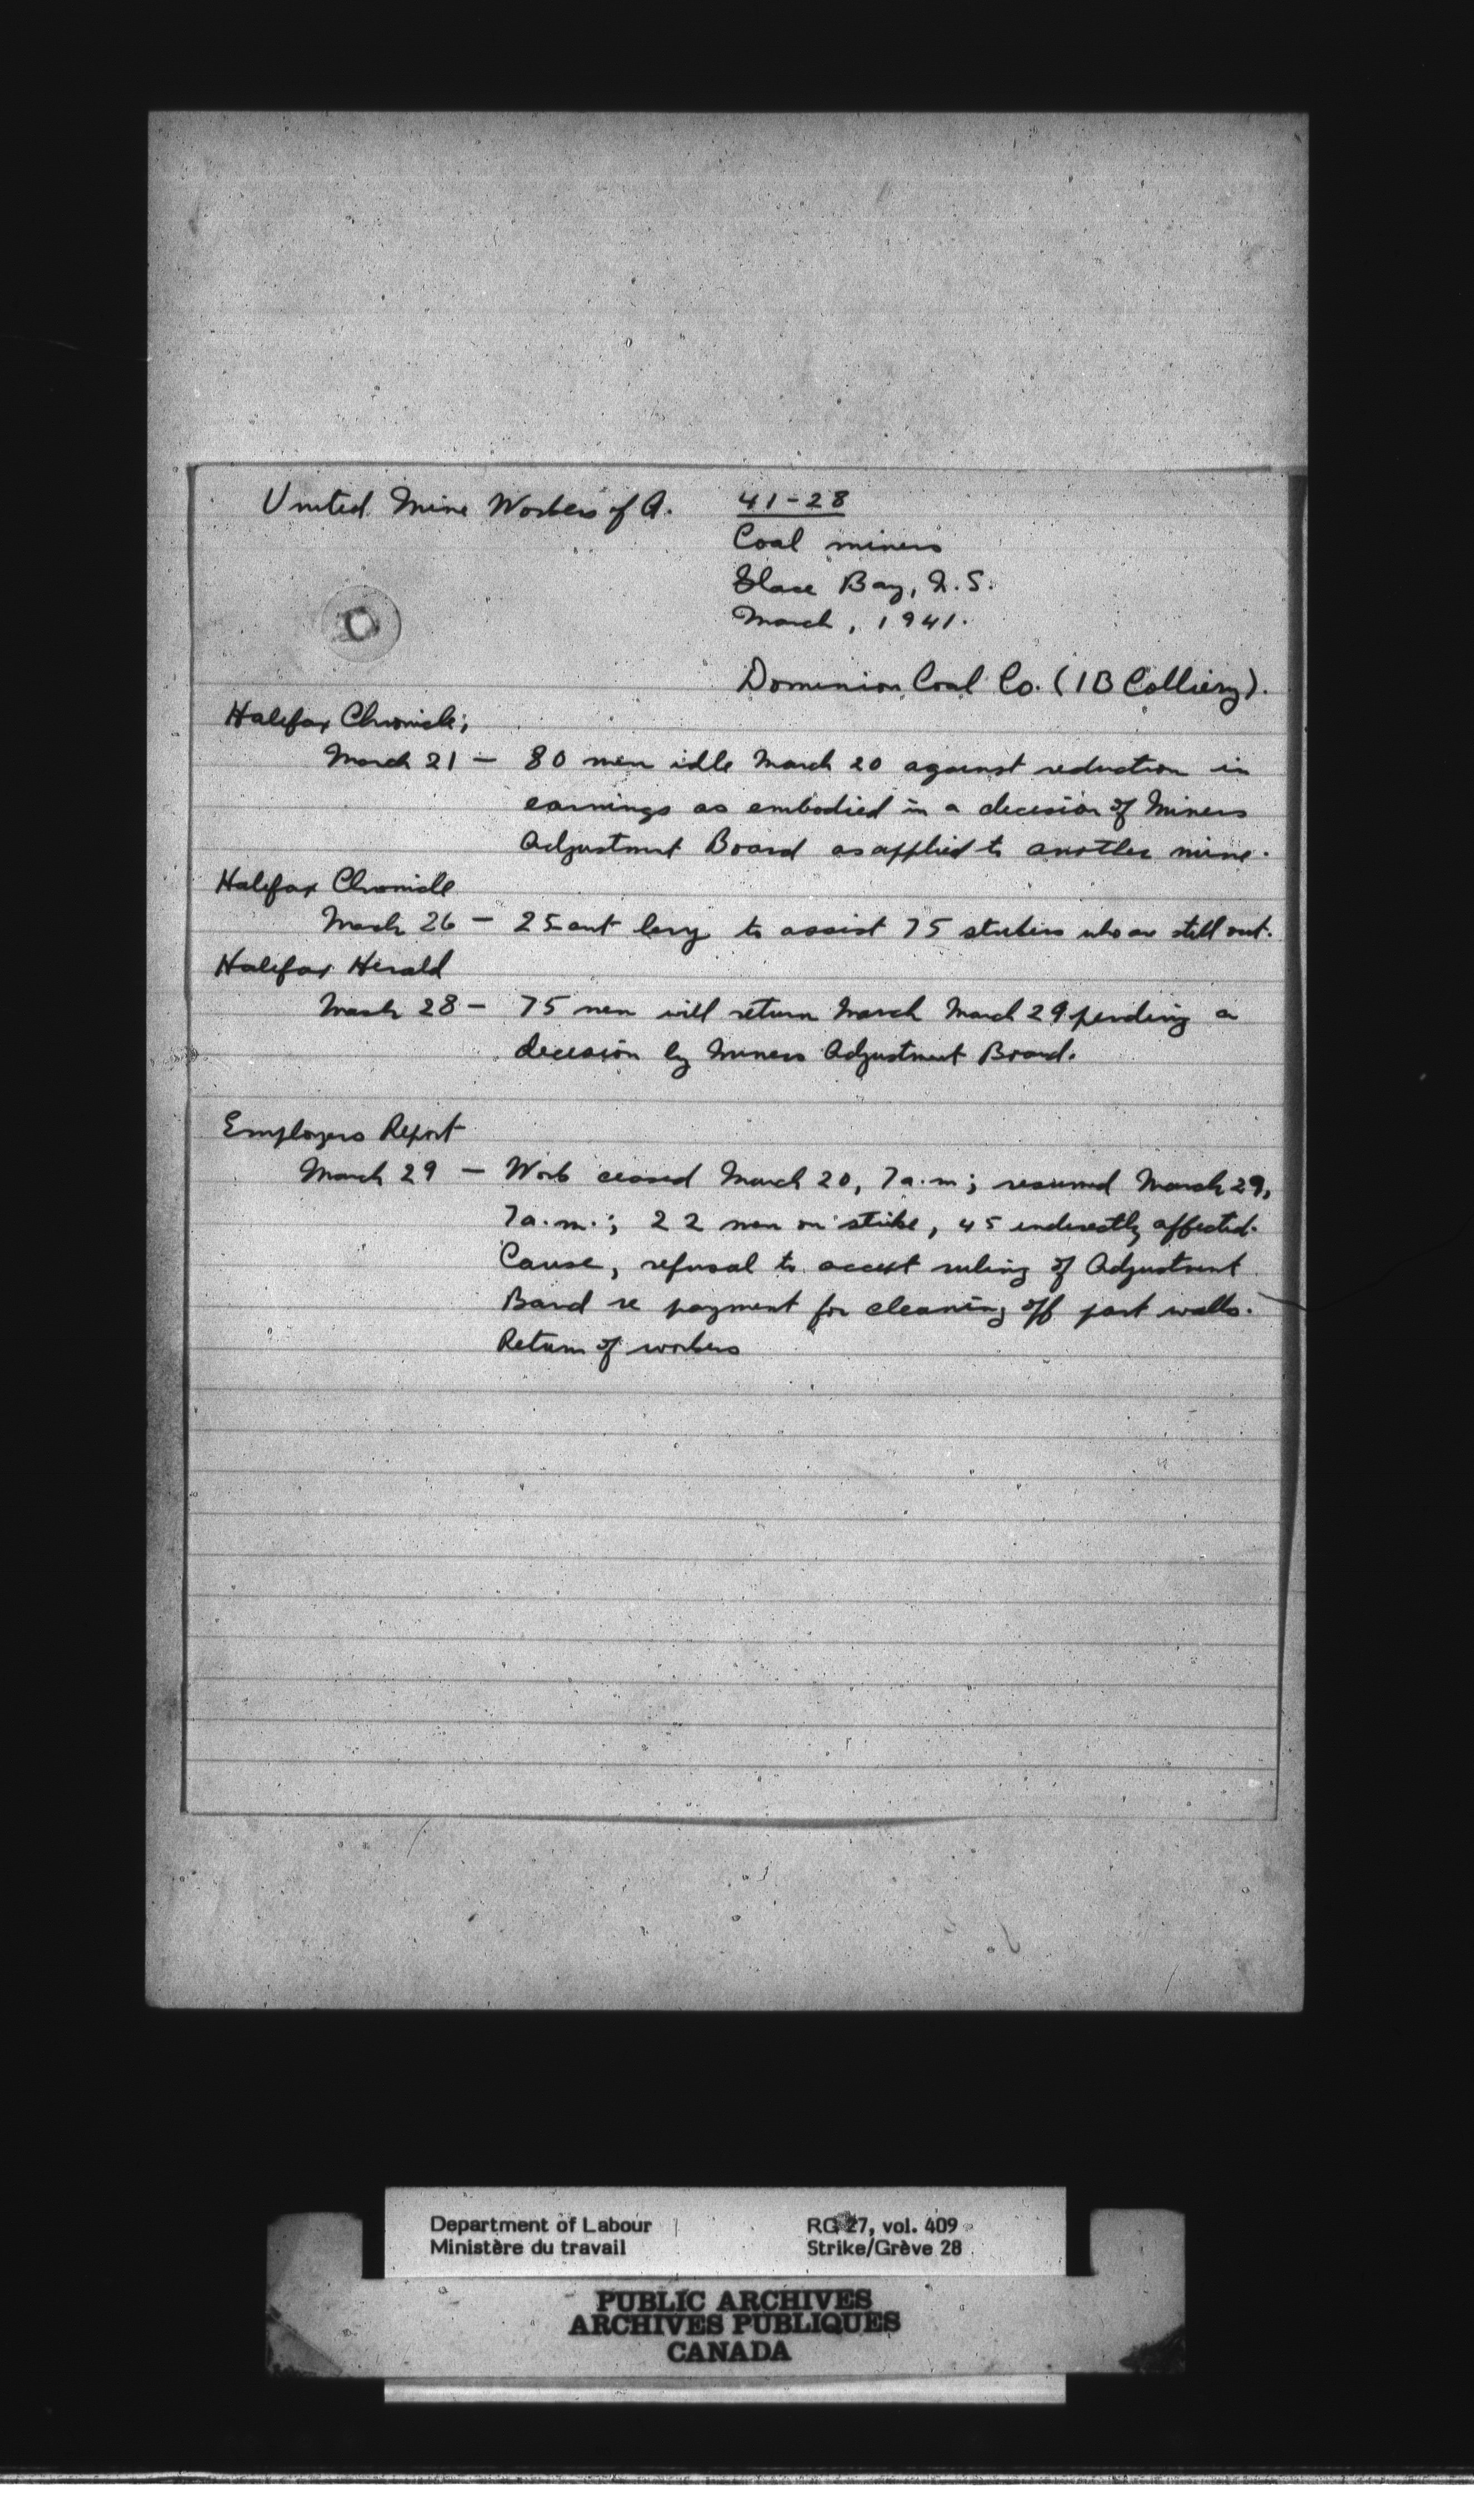 United Mine Workers of A.
41-28
Coal miners
Glace Bay, N.S.
March, 1941.
D
Dominion Coal Co. (1B Colliery).
Halifax Chronicle;
March 21 - 80 men idle March 20 against reduction in
earnings as embodied in a decision of Miners
Adjustment Board as applied to another mine.
Halifax Chronicle
March 26 - 25 cent levy to assist 75 strikers who are still out.
Halifax Herald
March 28 - 75 men will return March March 29 pending a
decision by Miners Adjustment Board.
Employers Report
March 29 - Work ceased March 20, 7 a.m; resumed March 29,
7 a.m.; 22 men on strike, 45 indirectly affected.
Cause, refusal to accept ruling of Adjustment
Board re payment for cleaning off part walls.
Return of workers
Department of Labour
Ministère du travail
RG 27, vol. 409
Strike/Grève 28
PUBLIC ARCHIVES
ARCHIVES PUBLIQUES
CANADA